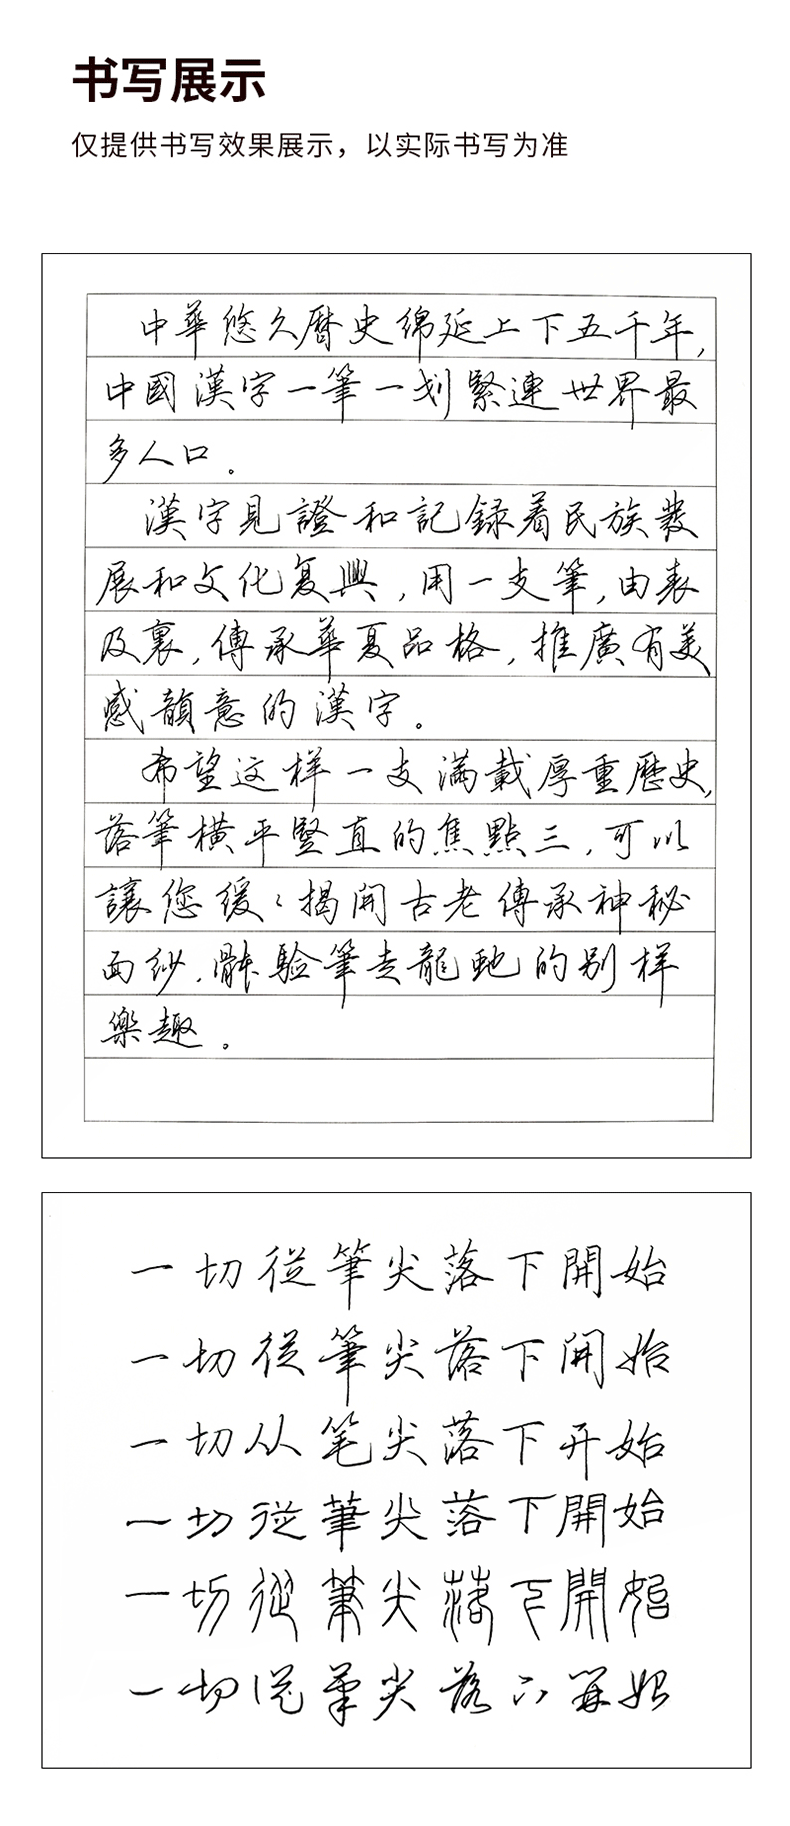 书写展示
仅提供书写效果展示，以实际书写为准
中華悠久曆史绵延上下五千年，
中國漢字一筆一划緊連世界最
多人口。
漢字見證和記録着民族發
展和文化复興，用一支筆，由表
及裏，傳承華夏品格，推廣有美
感韻意的漢字。
希望这样一支满載厚重歷史，
落筆橫平竪直的焦點三，可以
讓您缓々揭開古老傳承神秘
面纱，骵验筆走龍虵的别样
樂趣。
一切從筆尖落下開始
一切從筆尖落下開始
一切从笔尖落下开始
一切從筆尖落下開始
一切從筆尖落下開始
一切從筆尖落下開始